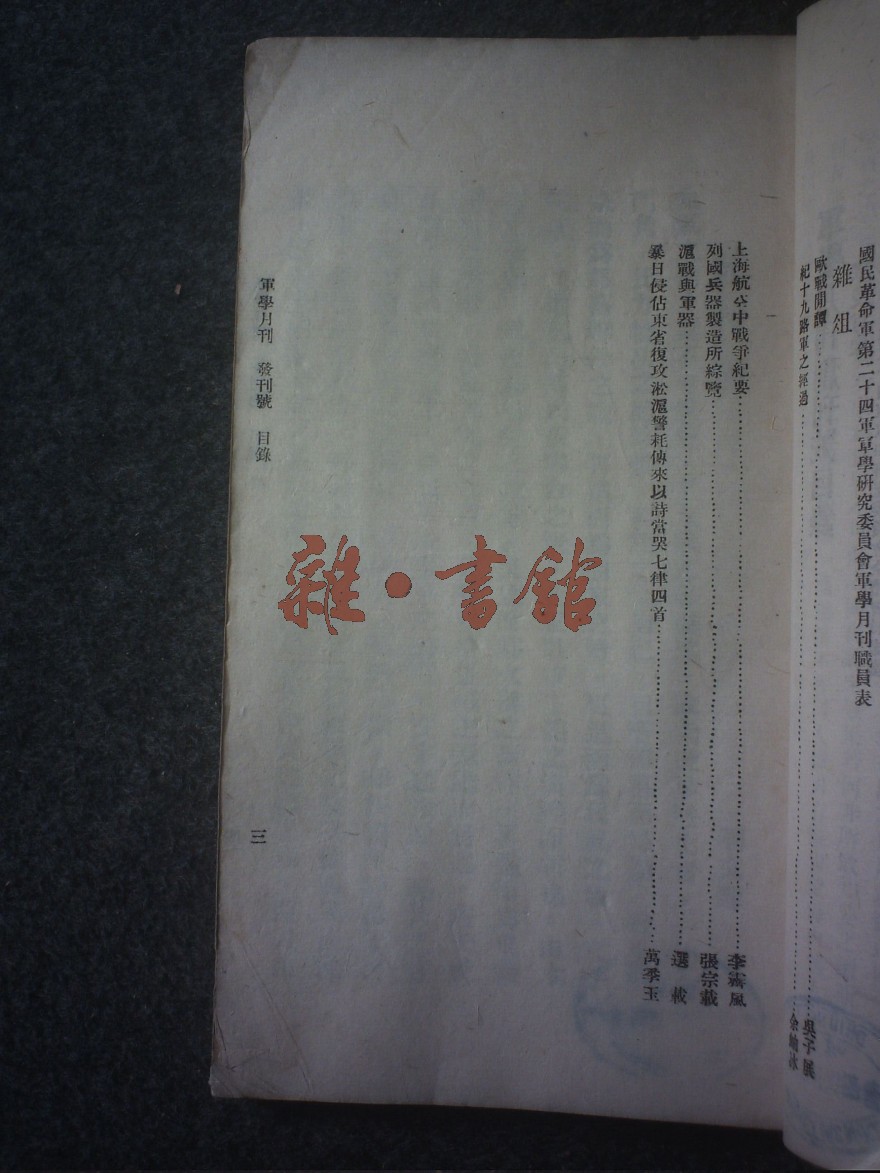 國民革命軍第二十四軍軍學研究委員會軍學月刊職員表
雜俎
歐戰閒譚……吳子展
紀十九路軍之經過……余
上海航空中戰爭紀要……李霽風
列國兵器製造所綜覽……張宗載
滬戰與軍器……選載
暴日侵佔東省復攻淞滬警耗傳來以詩當哭七律四首……萬季玉
軍學月刊 發刊號 目錄
三
雜•書館